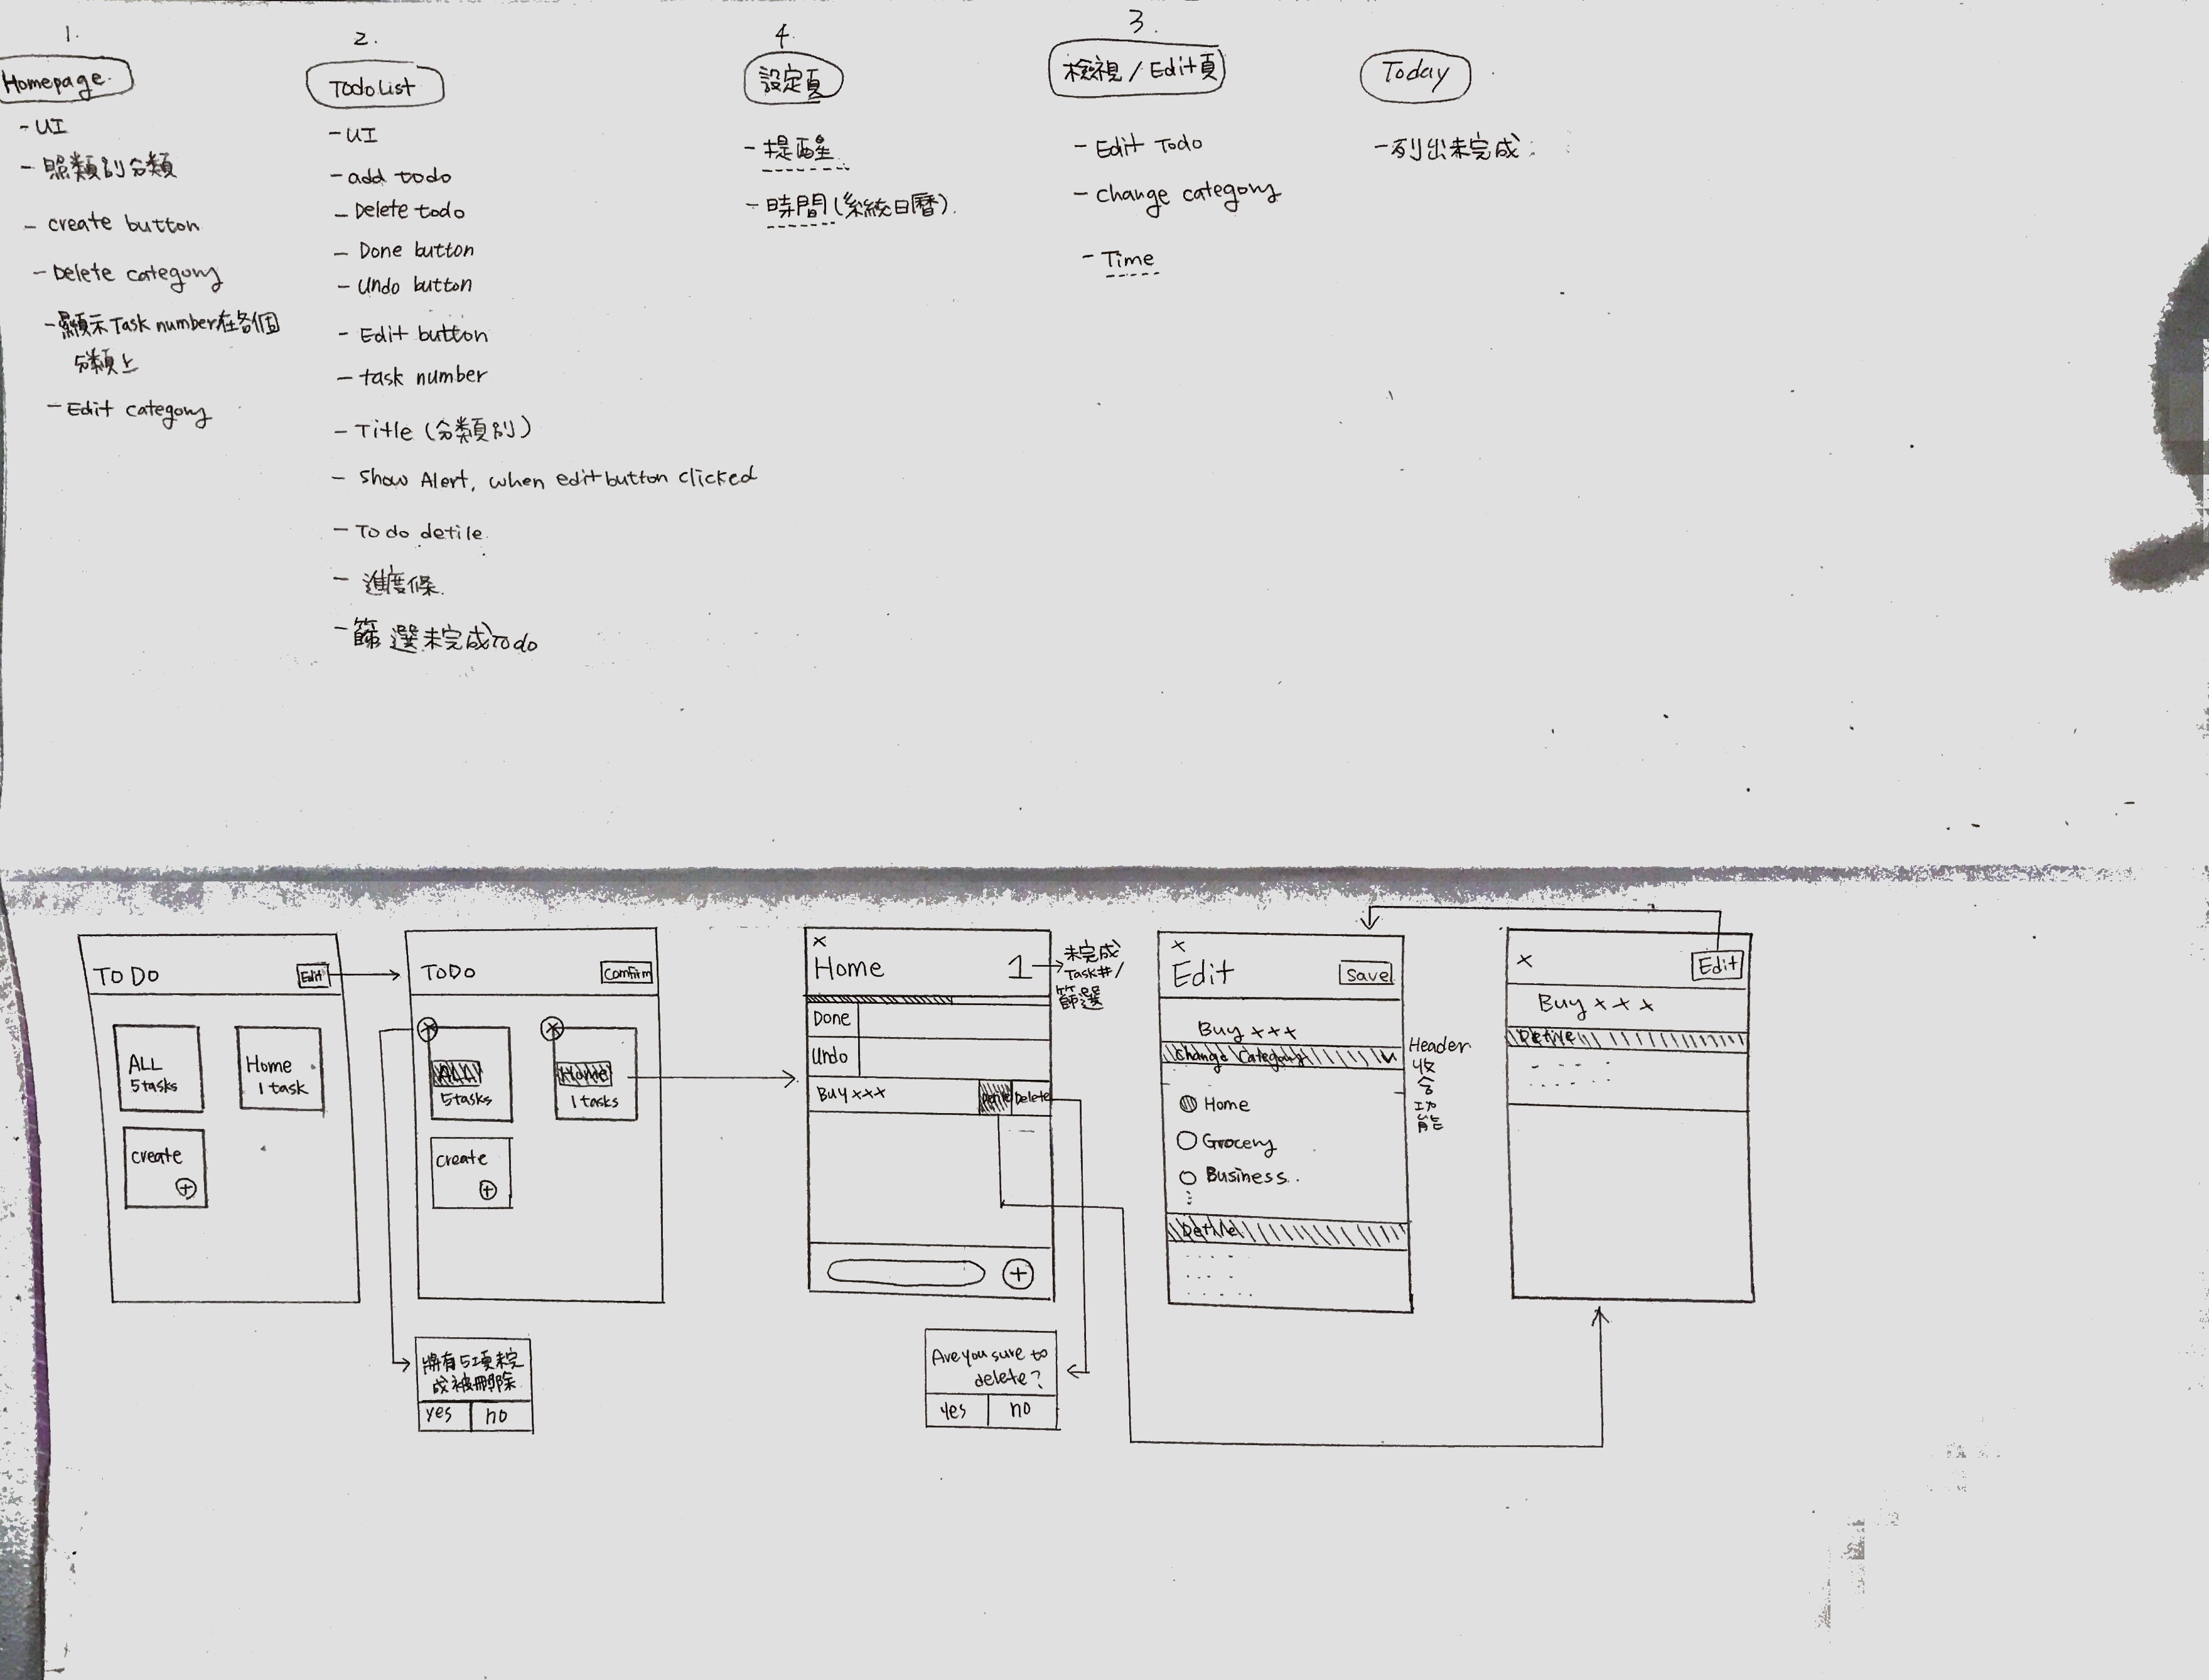 1.
Homepage.
- UI
- 照類別分類
- create button
- Delete category
- 顯示Task number在各個
分類上
- Edit category
2.
Todo List
- UI
- add todo
- Delete todo
- Done button
- Undo button
- Edit button
- task number
- Title (分類別)
- Show Alert, when edit button clicked
- To do detile
- 進度條
- 篩選未完成Todo
4.
設定頁
- 提醒
- 時間(系統日曆)
3.
檢視/Edit頁
- Edit Todo
- change category
- Time
Today
- 列出未完成
TO DO
Edit
ALL
5 tasks
Home
1 task
create
+
TODO
Comfirm
ALL
5 tasks
Home
1 tasks
create
+
將有5項未完
成被刪除
yes
no
x
Home
1
未完成
Task#/
篩選
Done
Undo
Buy xxx
Detile
Delete
+
Are you sure to
delete?
yes
no
x
Edit
Save
Buy xxx
Change Category
Home
Grocery
Business..
Detile
Header
收
合
功
能
x
Edit
Buy xxx
Detile